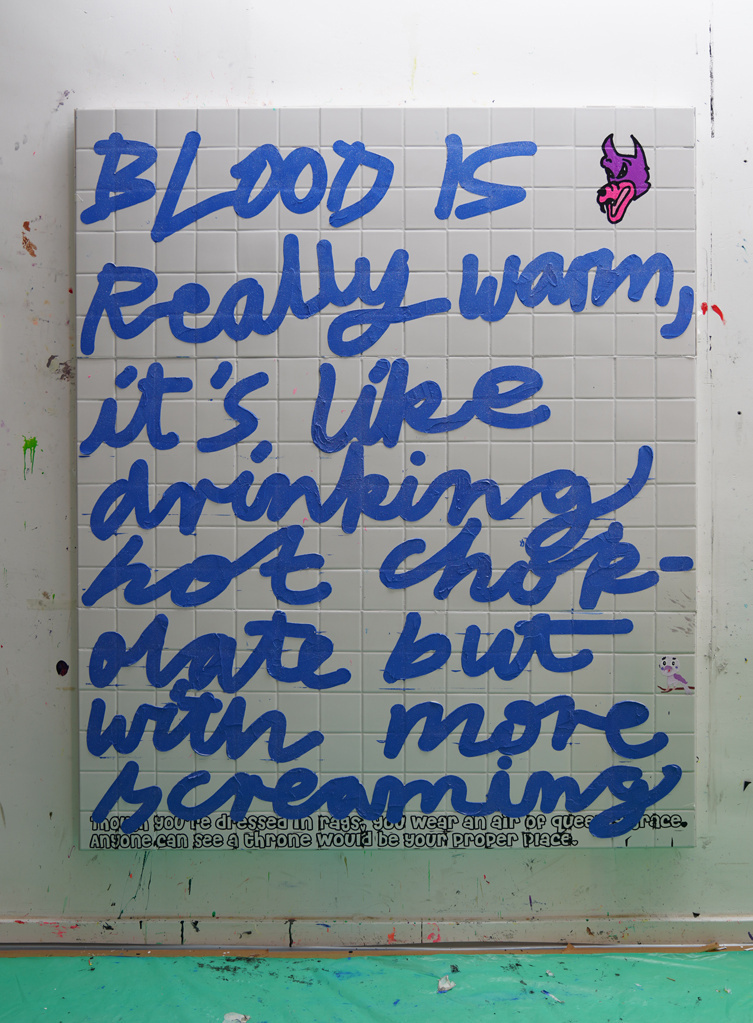 BLOOD IS
Really warm,
it's like
drinking
hot chok-
olate but
with more
screaming
Though you're dressed in rags, you wear an air of queenly grace.
Anyone can see a throne would be your proper place.